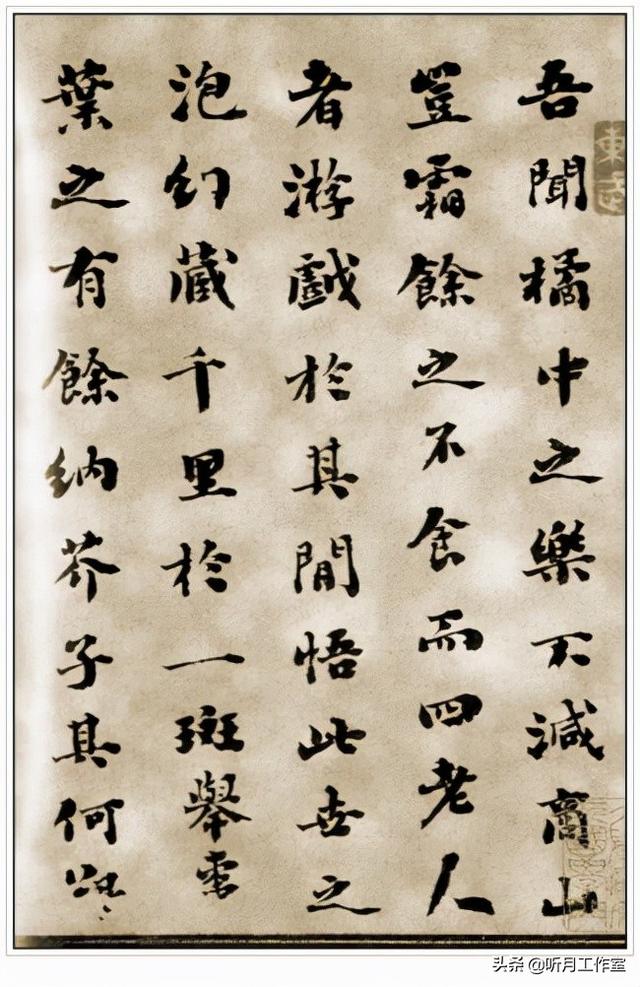 吾聞橘中之樂不減商山
豈霜餘之不食而四老人
者游戲於其閒悟此世之
泡幻藏千里於一斑舉棗
葉之有餘納芥子其何
東
头条 @听月工作室